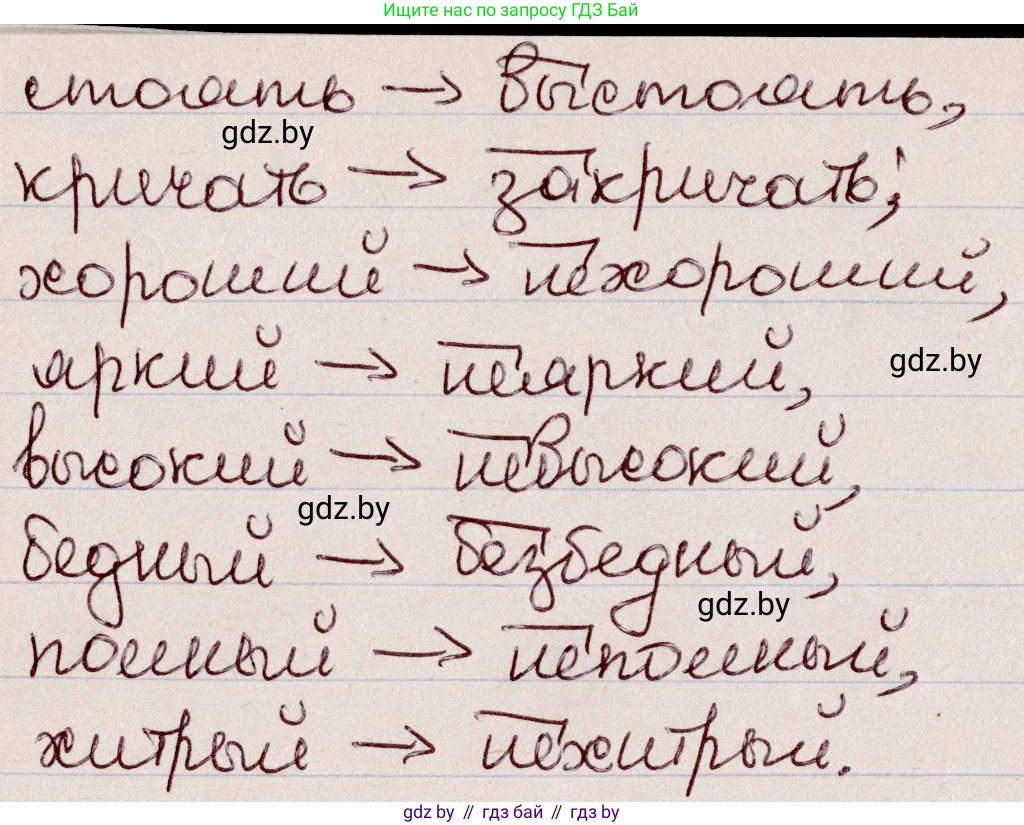 Ищите нас по запросу ГДЗ Бай
стоять → выстоять,
gdz.by
кричать → закричать;
хороший → нехороший,
яркий → неяркий,
gdz.by
высокий → невысокий,
gdz.by
бедный → безбедный,
gdz.by
полный → неполный,
хитрый → нехитрый.
gdz.by // гдз бай // gdz by